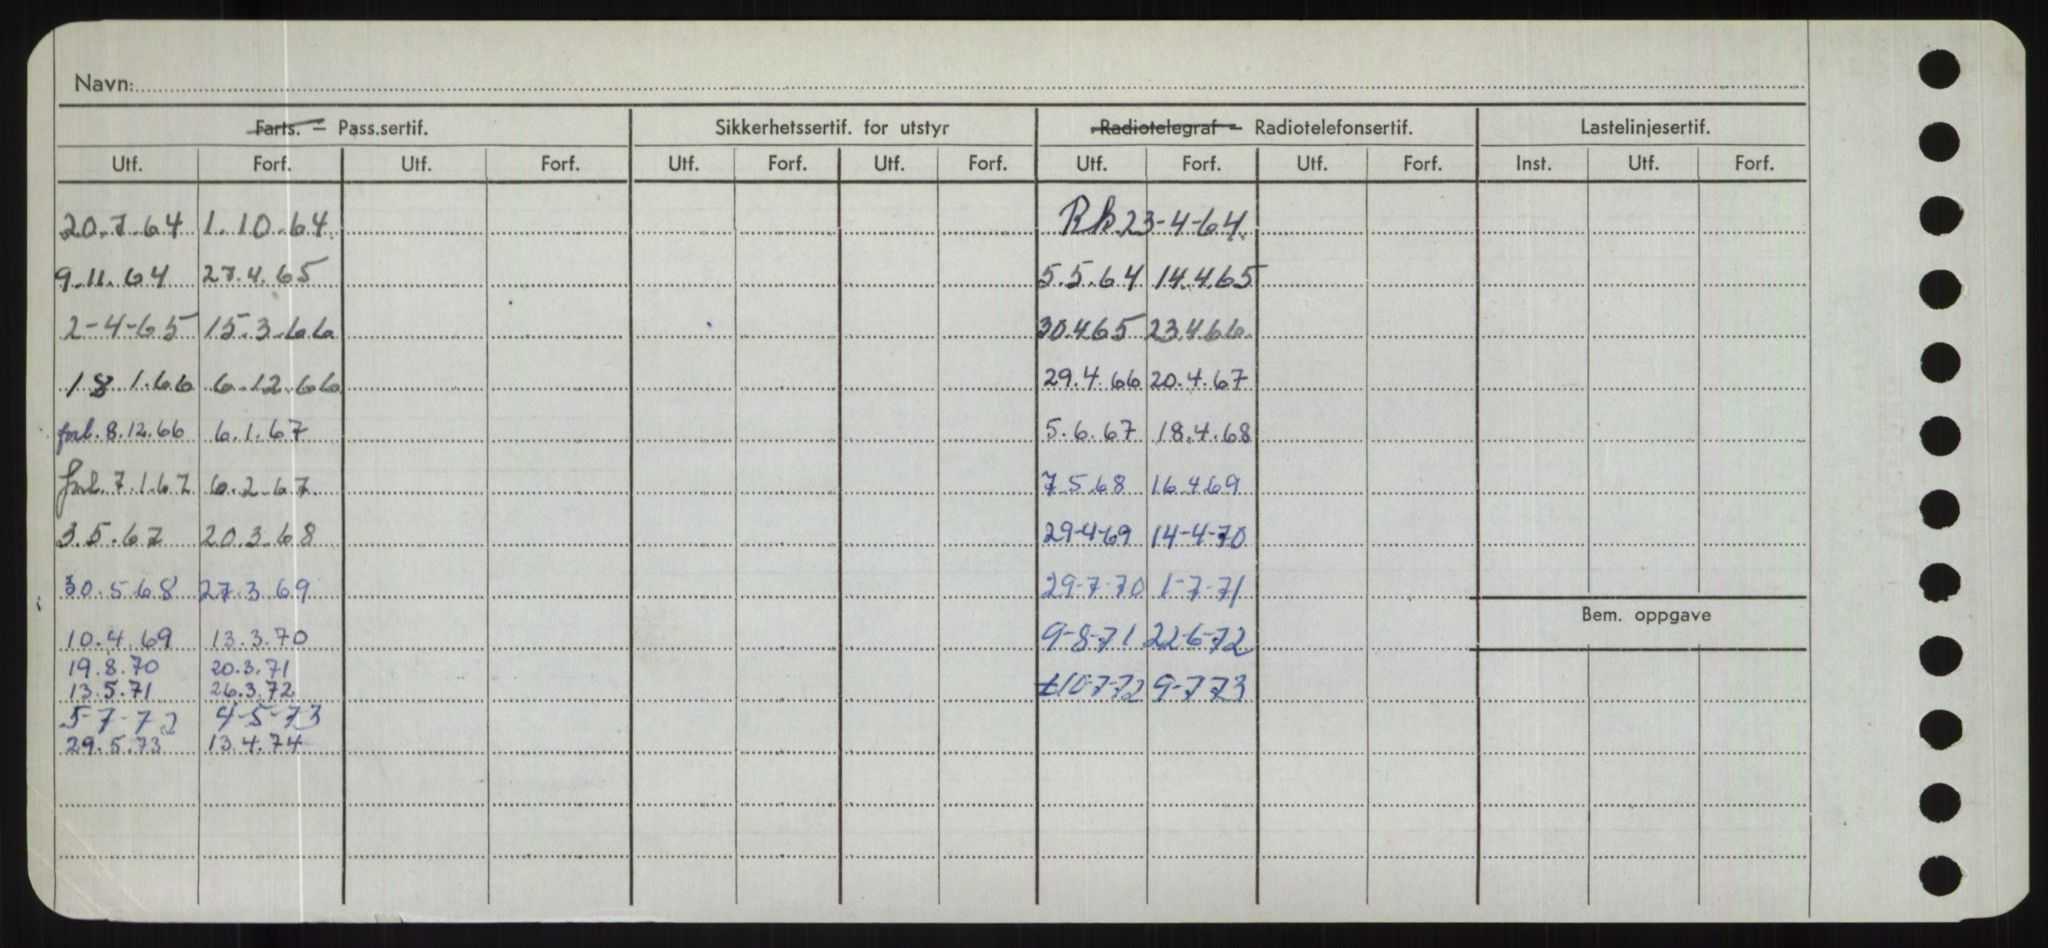 Navn:
Farts. – Pass.sertif. Sikkerhetssertif. for utstyr Radiotelegraf – Radiotelefonsertif. Lastelinjesertif.
Utf. Forf. Utf. Forf. Utf. Forf. Utf. Forf. Utf. Forf. Utf. Forf. Inst. Utf. Forf.
20.7.64 1.10.64 Rk 23-4-64
9.11.64 27.4.65 5.5.64 14.4.65
2-4-65 15.3.66 30.4.65 23.4.66
18 1.66 6.12.66 29.4.66 20.4.67
forl. 8.12.66 6.1.67 5.6.67 18.4.68
forl. 7.1.67 6.2.67 7.5.68 16.4.69
3.5.67 20.3.68 29-4-69 14-4-70
30.5.68 27.3.69 29-7-70 1-7-71
Bem. oppgave
10.4.69 13.3.70 9-8-71 22-6-72
19.8.70 20.3.71
13.5.71 26.3.72 10-7-72 9-7-73
5-7-72 4-5-73
29.5.73 13.4.74